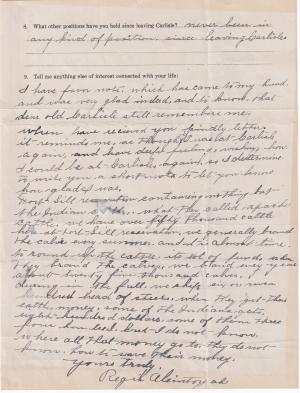 8. What other positions have you held since leaving Carlisle? never been in
any kind of position, since leaving Carlisle
9. Tell me anything else of interest connected with your life:
I have your note, which has come to my hand,
and was very glad indeed, and to know, that
dear old Carlisle still remember me.
when have received you kindly letter,
it reminds me, as though I was at Carlisle
again, and have deep feeling, wishing how
I could be at Carlisle, again, so I determine
to write you a short note to let you know
how glad I was.
Fort Sill reservation containing nothing but
the Indian what they called, apache
cattle, we have over fifty thousand cattle
here at Fort Sill reservation, we generally brand
the calves every summer, and it is almost time
to round up the cattle,
brand the calves, we brand every year
about twenty five thousand calves
during in the fall, we ship six or seven
hundred head of steers, when they get their
cattle money, some of the Indians gets,
eight hundred dollars, some of them three
four hundred but I do not know,
where all that money go to, they do not
know, how to save their money.
yours truly